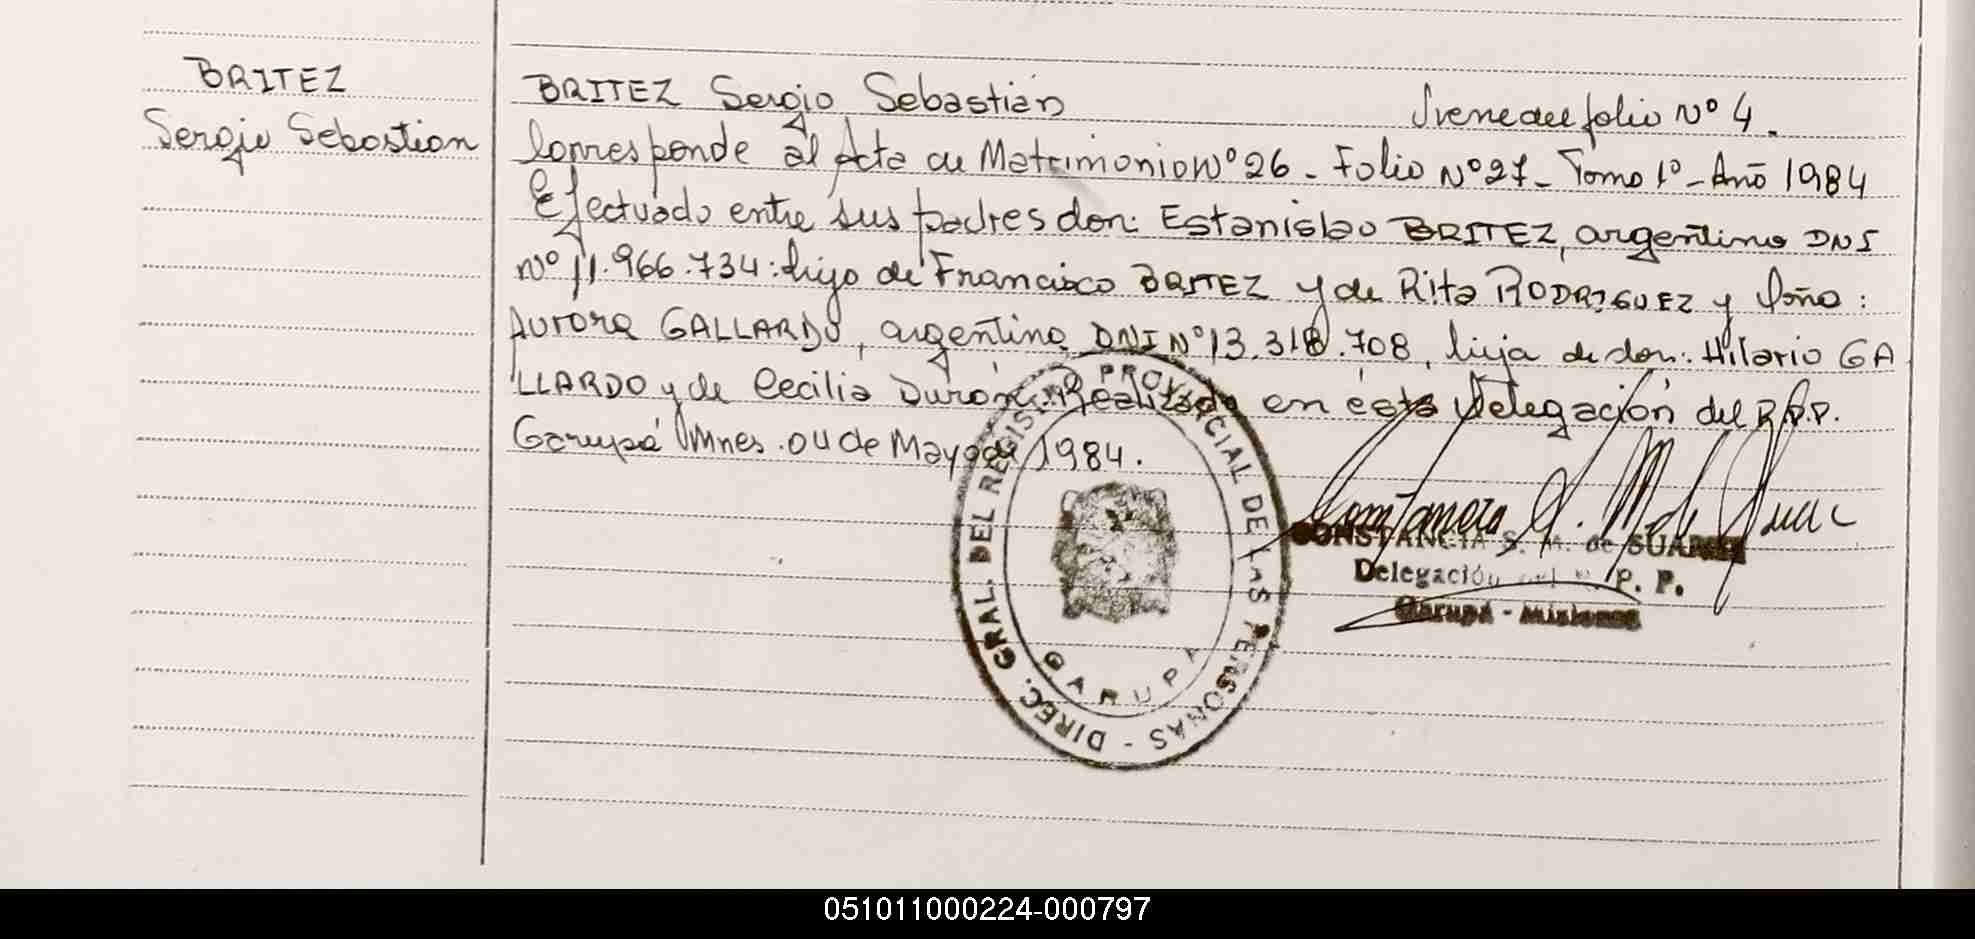 BRITEZ
Sergio Sebastian
BRITEZ Sergio Sebastián Viene del folio Nº 4.
Corresponde al Acta de Matrimonio Nº 26 - Folio Nº 27 - Tomo 1º - Año 1984
Efectuado entre sus padres don: Estanislao BRITEZ, argentino DNI
Nº 11.966.734: hijo de Francisco BRITEZ y de Rita RODRIGUEZ y doña:
Aurora GALLARDO, argentina DNI Nº 13.318.708, hija de don: Hilario GA
LLARDO y de Cecilia Durón. Realizado en ésta Delegación del R.P.P.
Garupá Mnes. 04 de Mayo de 1984.
DIREC. GRAL. DEL REGIST. PROVINCIAL DE LAS PERSONAS -
GARUPA
CONSTANCIA S. M. de SUAREZ
Delegación P. P.
Garupá - Misiones
051011000224-000797